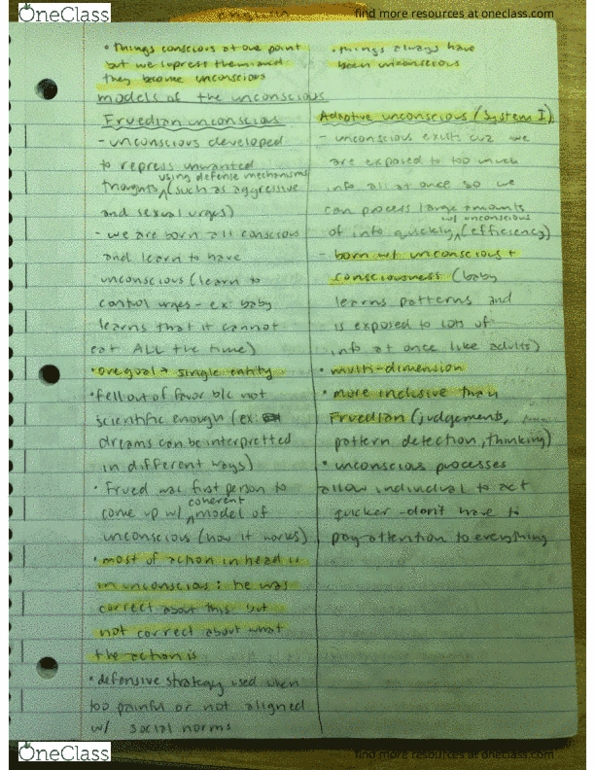 OneClass
find more resources at oneclass.com
• things conscious at one point
but we supress them and
they become unconscious
• things always have
been unconscious
models of the unconscious
Fruedian unconscious
- unconscious developed
to repress unwanted
using defense mechanisms
thoughts ^ (such as aggressive
and sexual urges)
- we are born all conscious
and learn to have
unconscious (learn to
control urges - ex: baby
learns that it cannot
eat ALL the time)
• one goal → single entity
• fell out of favor b/c not
scientific enough (ex:
dreams can be interpretted
in different ways)
• Frued was first person to
coherent
come up w/ ^ model of
unconscious (how it works)
• most of action in head is
in unconscious: he was
correct about this but
not correct about what
the action is
• defensive strategy used when
too painful or not aligned
w/ social norms
Adaptive unconscious (System I)
- unconscious exists cuz we
are exposed to too much
info all at once so we
can process large amounts
w/ unconscious
of info quickly ^ (efficiency)
- born w/ unconscious +
consciousness (baby
learns patterns and
is exposed to lots of
info at once like adults)
• multi-dimension
• more inclusive than
Fruedian (judgements,
pattern detection, thinking)
• unconscious processes
allow individual to act
quicker - don't have to
pay attention to everything
OneClass
find more resources at oneclass.com